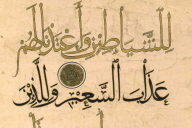 للشياطين وأعتدنا لهم
عذاب السعير وللذين